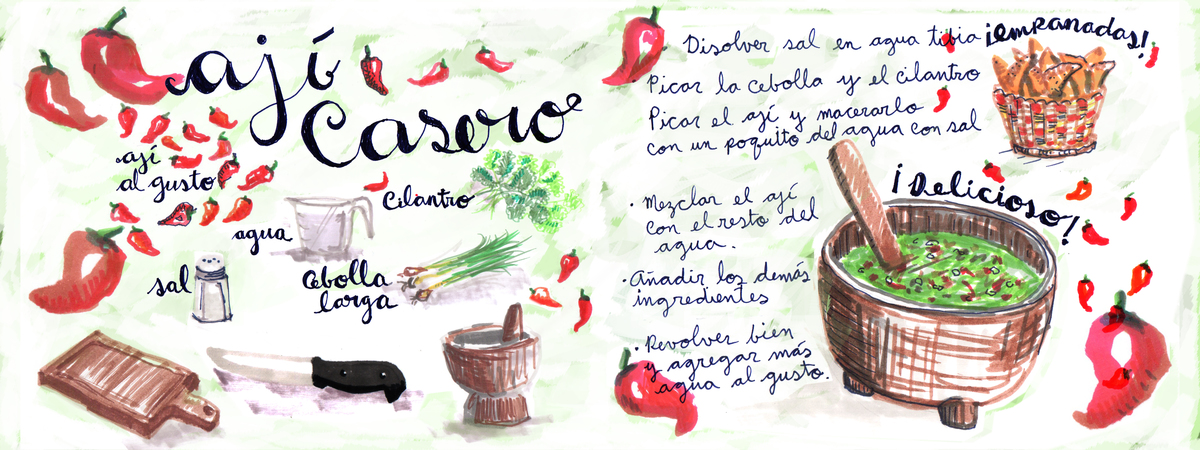 ají
Casero
ají
al gusto
Cilantro
agua
sal
Cebolla
larga
Disolver sal en agua tibia
¡Empanadas!
· Picar la cebolla y el cilantro
Picar el ají y macerarlo
con un poquito del agua con sal
· Mezclar el ají
con el resto del
agua.
· Añadir los demás
ingredientes
· Revolver bien
y agregar más
agua al gusto.
¡Delicioso!